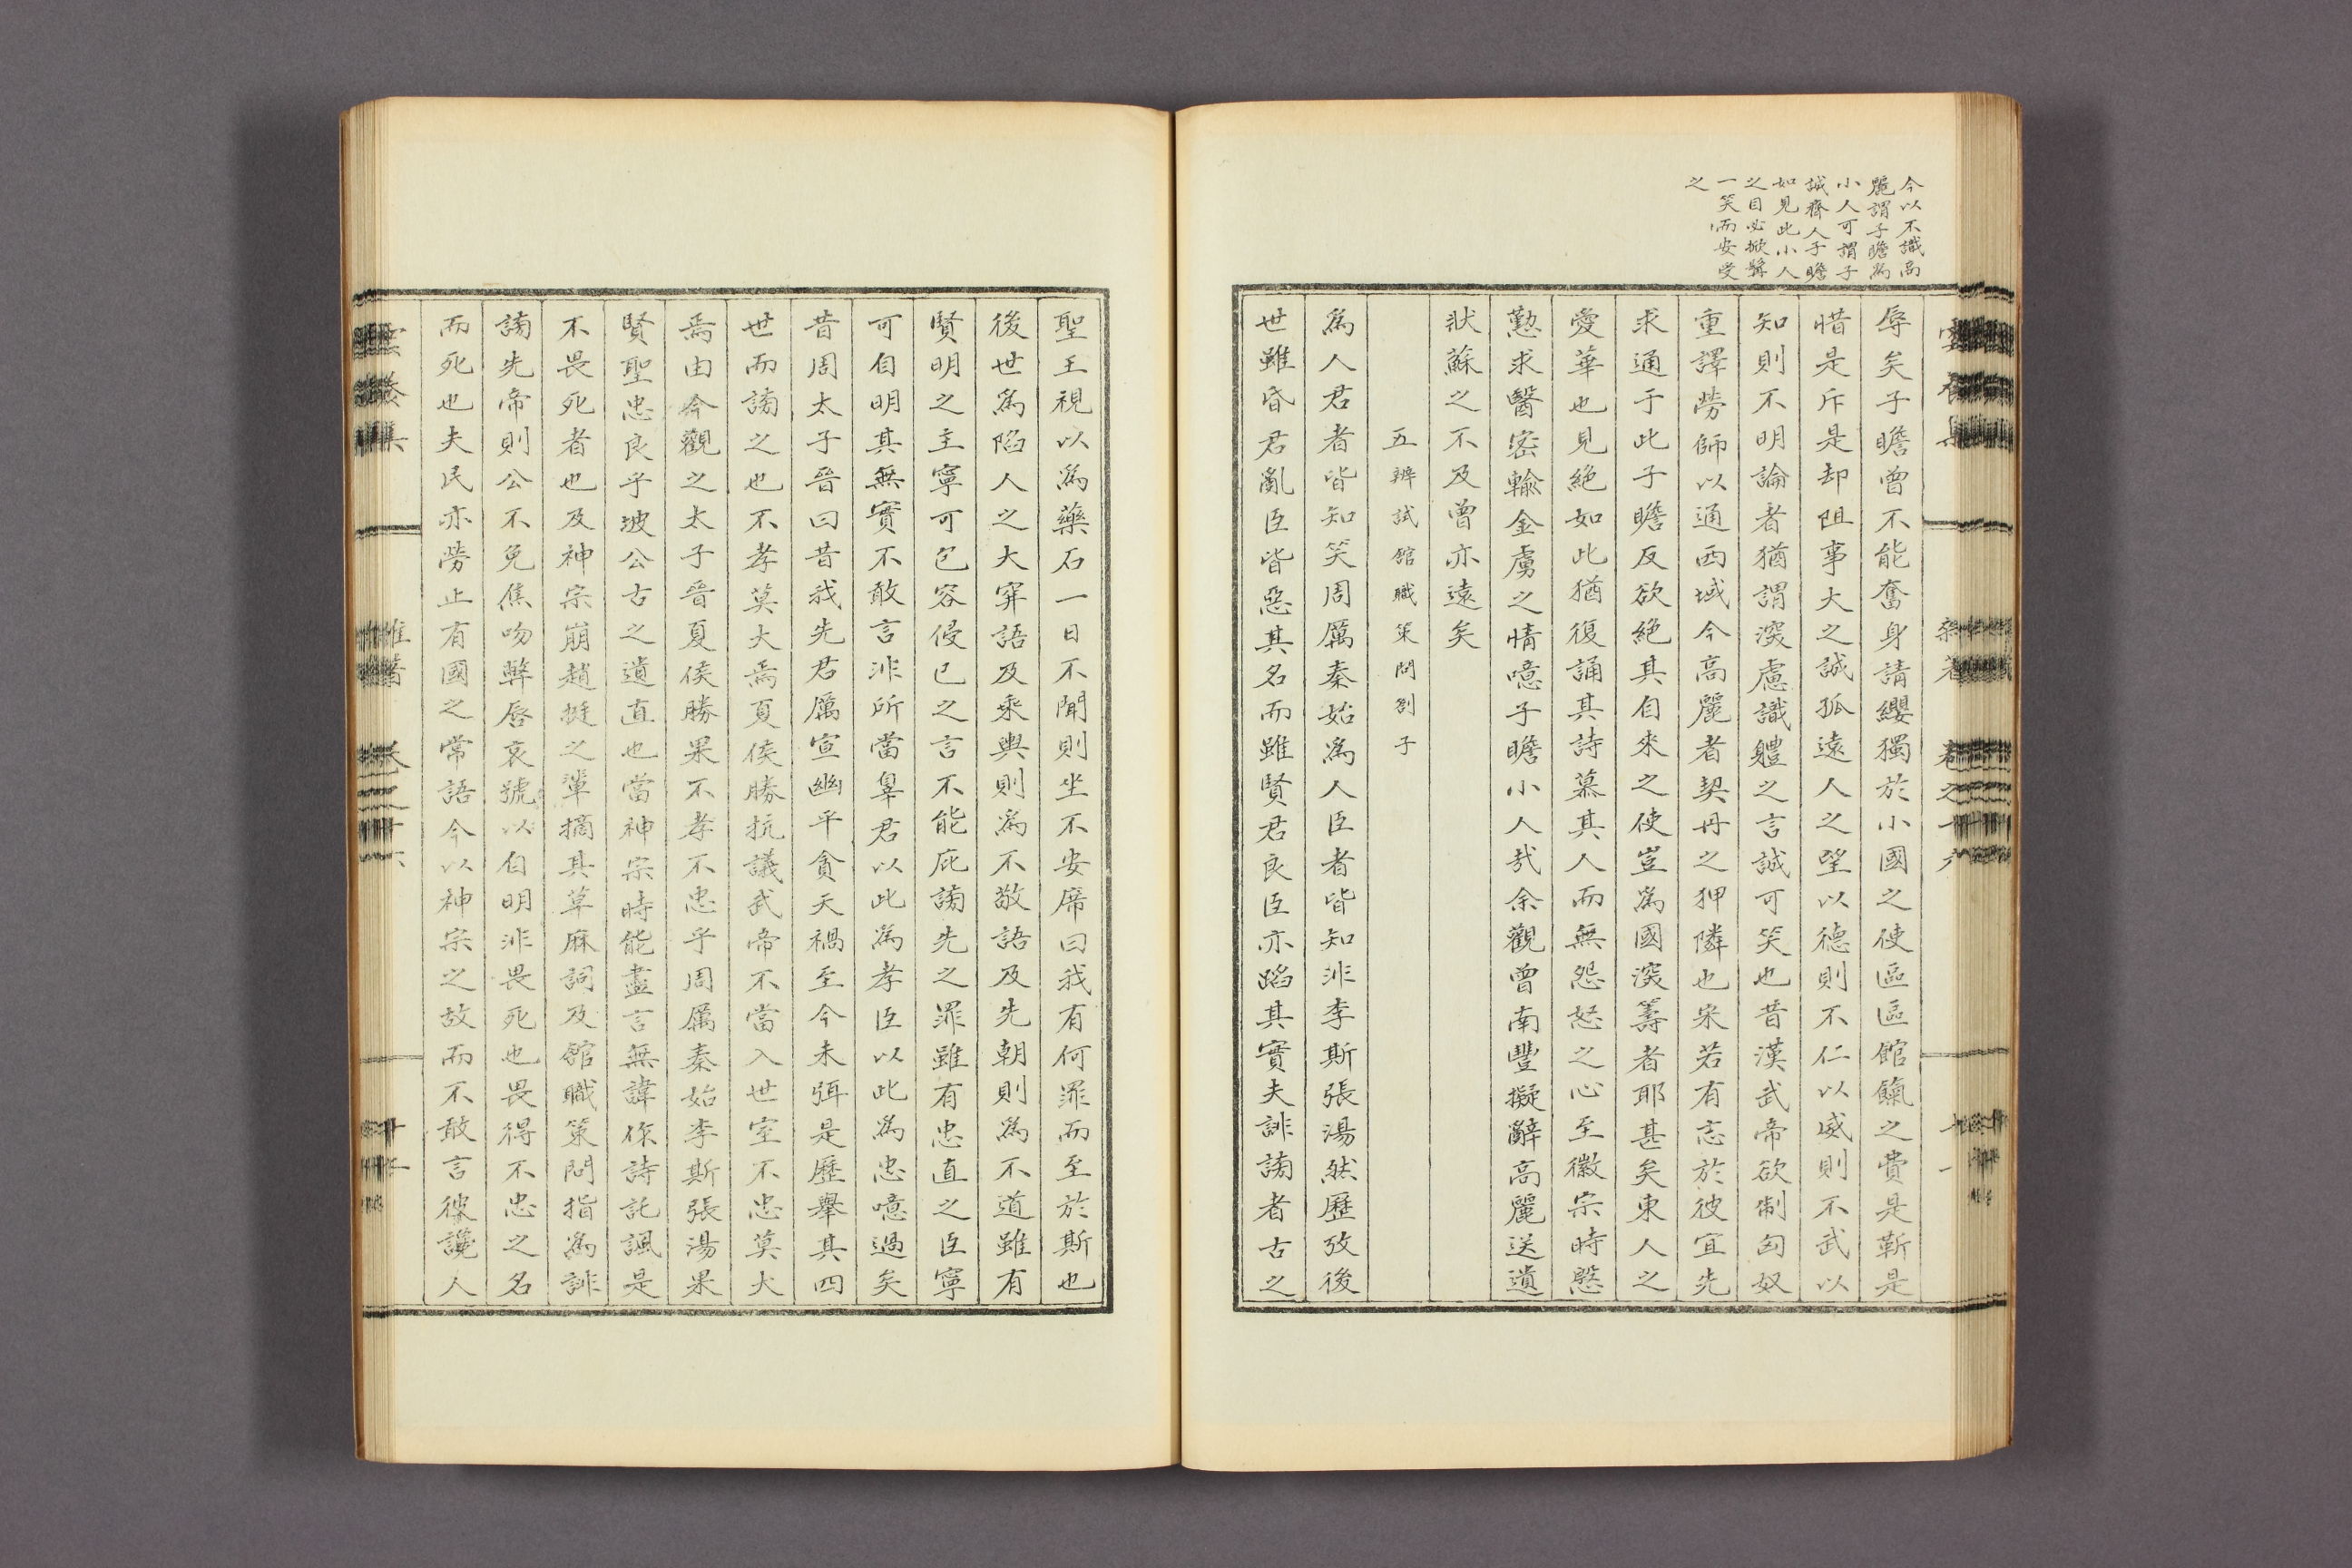 今以不識高
麗謂子瞻爲
小人可謂子
誠齊人子瞻
如見此小人
之目必掀髥
一笑而安受
之
辱矣子瞻曾不能奮身請纓獨於小國之使區區館餼之費是靳是
惜是斥是却阻事大之誠孤遠人之望以德則不仁以威則不武以
知則不明論者猶謂深慮識軆之言誠可笑也昔漢武帝欲制匈奴
重譯勞師以通西域今高麗者契丹之狎隣也宋若有志於彼宜先
求通于此子瞻反欲絶其自來之使豈爲國深籌者耶甚矣東人之
愛華也見絶如此猶復誦其詩慕其人而無怨怒之心至徽宗時慇
懃求醫密輸金虜之情噫子瞻小人哉余觀曾南豐擬辭高麗送遺
狀蘇之不及曾亦遠矣
五辨試館職策問劄子
爲人君者皆知笑周厲秦始爲人臣者皆知非李斯張湯然歷攷後
世雖昏君亂臣皆惡其名而雖賢君良臣亦蹈其實夫誹謗者古之
聖王視以爲藥石一日不聞則坐不安席曰我有何罪而至於斯也
後世爲陷人之大穽語及乘輿則爲不敬語及先朝則爲不道雖有
賢明之主寧可包容侵已之言不能庇謗先之罪雖有忠直之臣寧
可自明其無實不敢言非所當辠君以此爲孝臣以此爲忠噫過矣
昔周太子晉曰昔我先君厲宣幽平貪天禍至今未弭是歷擧其四
世而謗之也不孝莫大焉夏侯勝抗議武帝不當入世室不忠莫大
焉由今觀之太子晉夏侯勝果不孝不忠乎周厲秦始李斯張湯果
賢聖忠良乎坡公古之遺直也當神宗時能盡言無諱作詩託諷是
不畏死者也及神宗崩趙挺之輩摘其草麻詞及館職策問指爲誹
謗先帝則公不免焦吻弊唇哀號以自明非畏死也畏得不忠之名
而死也夫民亦勞止有國之常語今以神宗之故而不敢言彼讒人